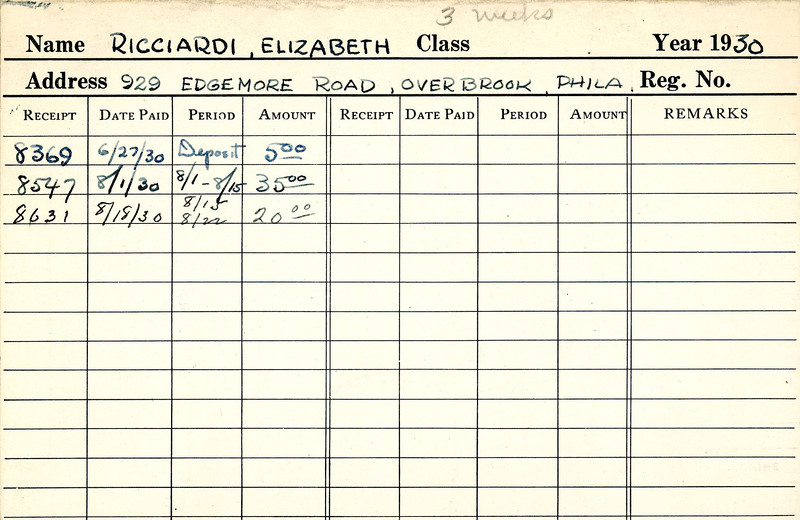 3 weeks
Name RICCIARDI, ELIZABETH Class Year 1930
Address 929 EDGEMORE ROAD, OVERBROOK, PHILA. Reg. No.
RECEIPT DATE PAID PERIOD AMOUNT RECEIPT DATE PAID PERIOD AMOUNT REMARKS
8369 6/27/30 Deposit 5 00
8547 8/1/30 8/1-8/15 35 00
8631 8/18/30 8/15 8/22 20 00